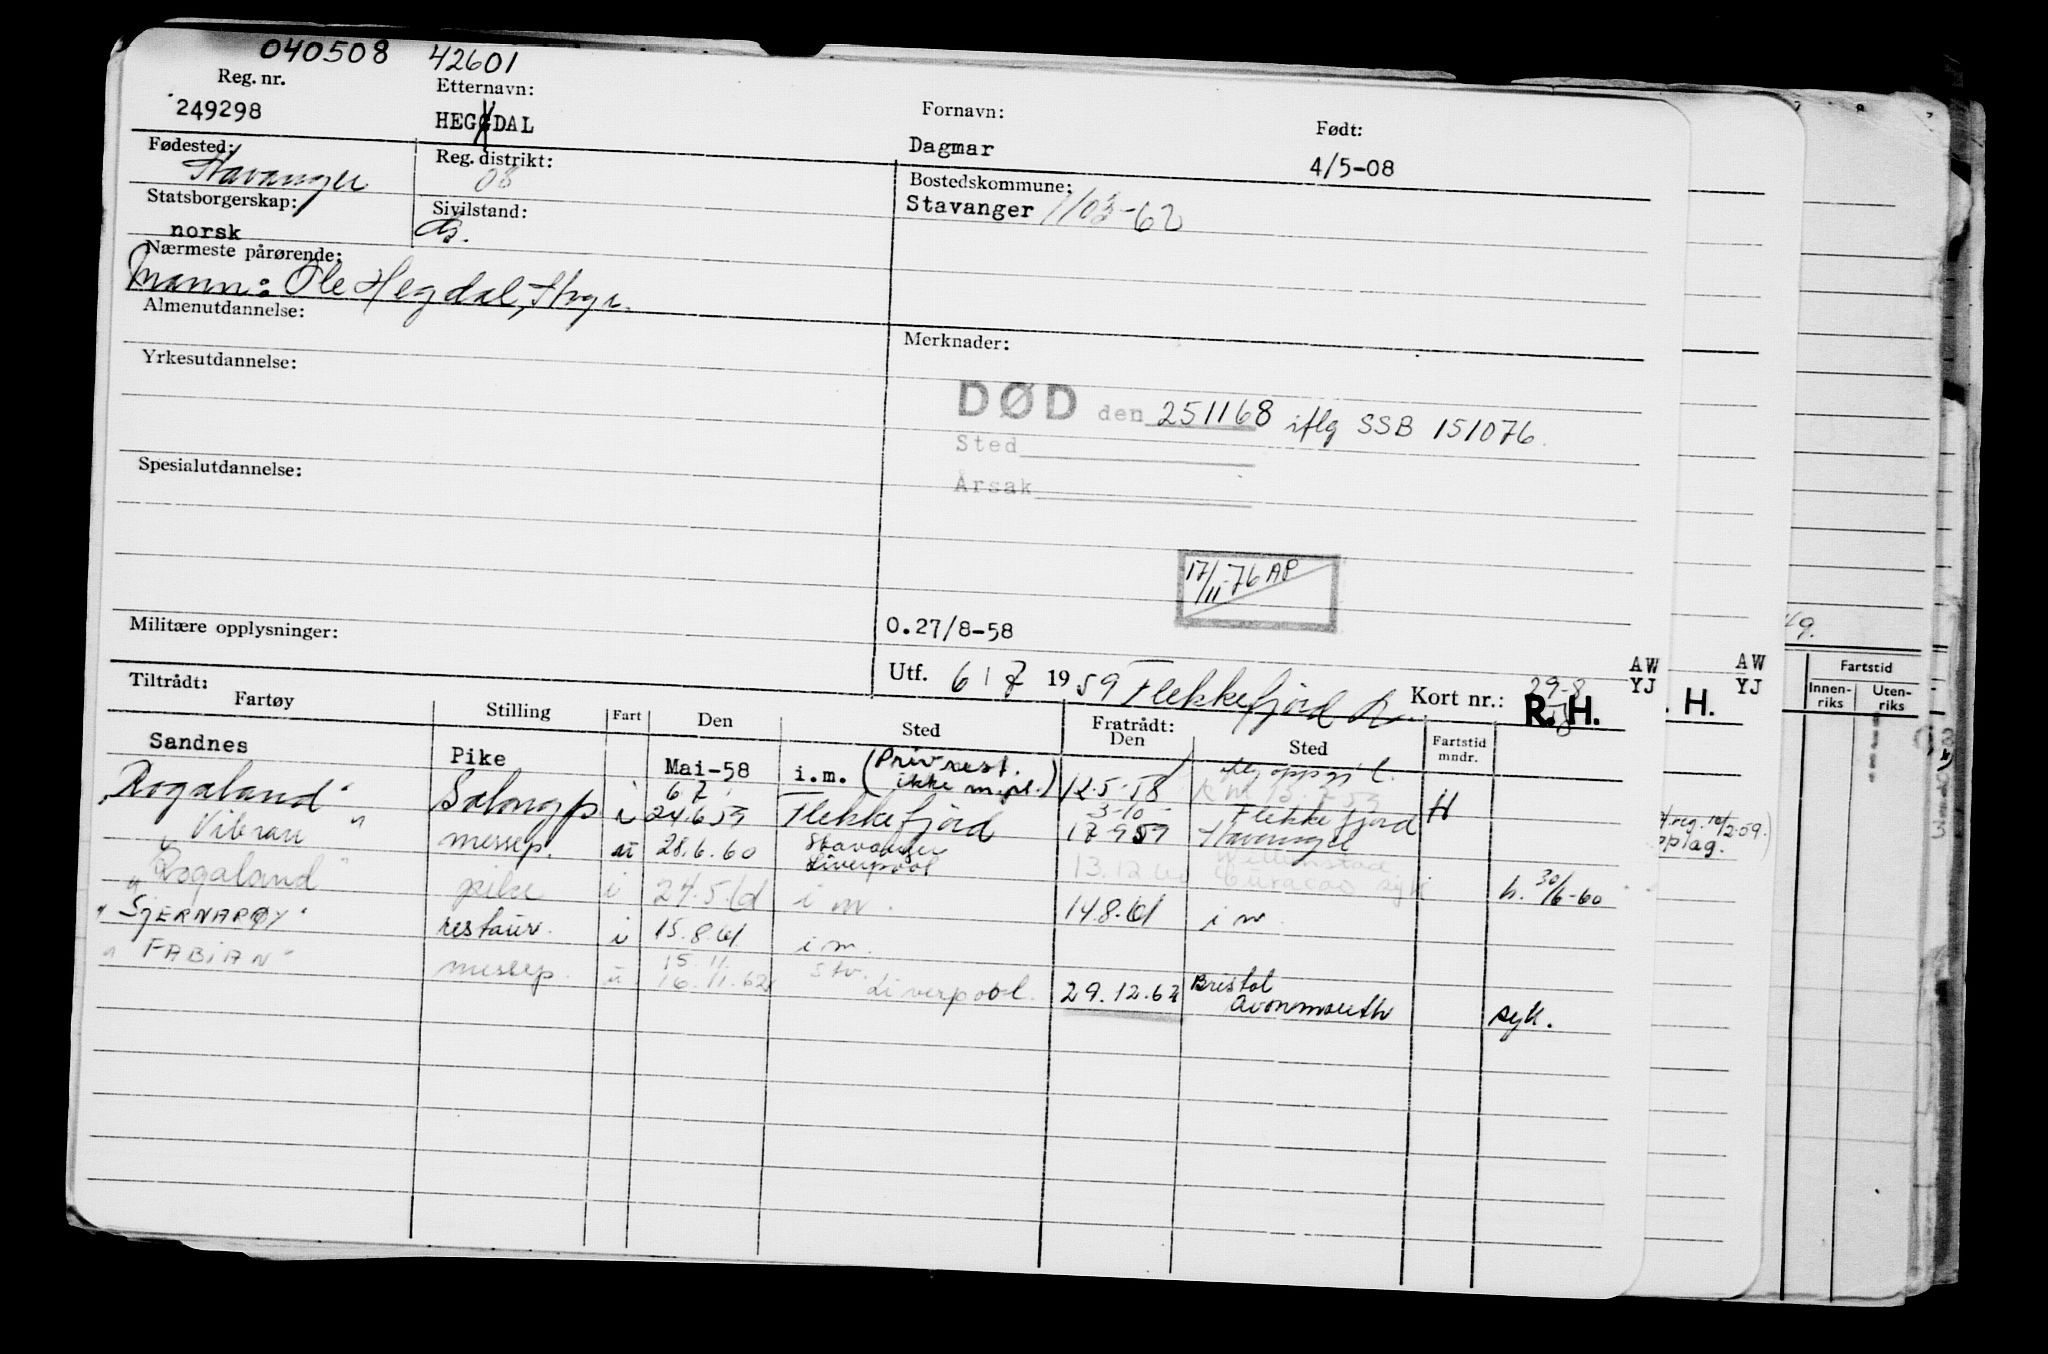 040508 42601
Reg. nr. Etternavn: Fornavn: Født:
249298 HEGGDAL Dagmar 4/5-08
Fødested: Reg. distrikt: Bostedskommune:
Stavanger 08 Stavanger 1103-62
Statsborgerskap: Sivilstand:
norsk G.
Nærmeste pårørende:
Mann: Ole Hegdal, Stvgr.
Almenutdannelse: Merknader:
Yrkesutdannelse:
DØD den 251168 iflg SSB 151076.
Sted
Årsak
Spesialutdannelse:
17/11-76 AP
Militære opplysninger: 0.27/8-58
Utf. 6 / 7 1959 Flekkefjord Kort nr.: 29-8
AW
YJ
R. H.
AW
YJ
. H.
Tiltrådt: Fratrådt:
Fartøy Stilling Fart Den Sted Den Sted Fartstid mndr.
Sandnes Pike Mai-58 i.m. (Priv rest. ikke m.pl.) 12.5-58
6 7 3-10
"Rogaland" Salongp i 24.6.59 Flekkefjord 17-9 59 Flekkefjord Stavanger H
"Vibran" messep. u 28.6.60 Stavanger Liverpool 13.12.60 Willemstad Curacao syk h. 30/6-60
"Rogaland" pike i 24.5.61 i m. 14.8.61 i m.
"SJERNARØY" restaur. i 15.8.61 i m.
15.11
"FABIAN" messep. u 16.11.62 Stv. Liverpool. 29.12.62 Bristol Avonmouth syk.
Fartstid
Innen-riks Uten-riks